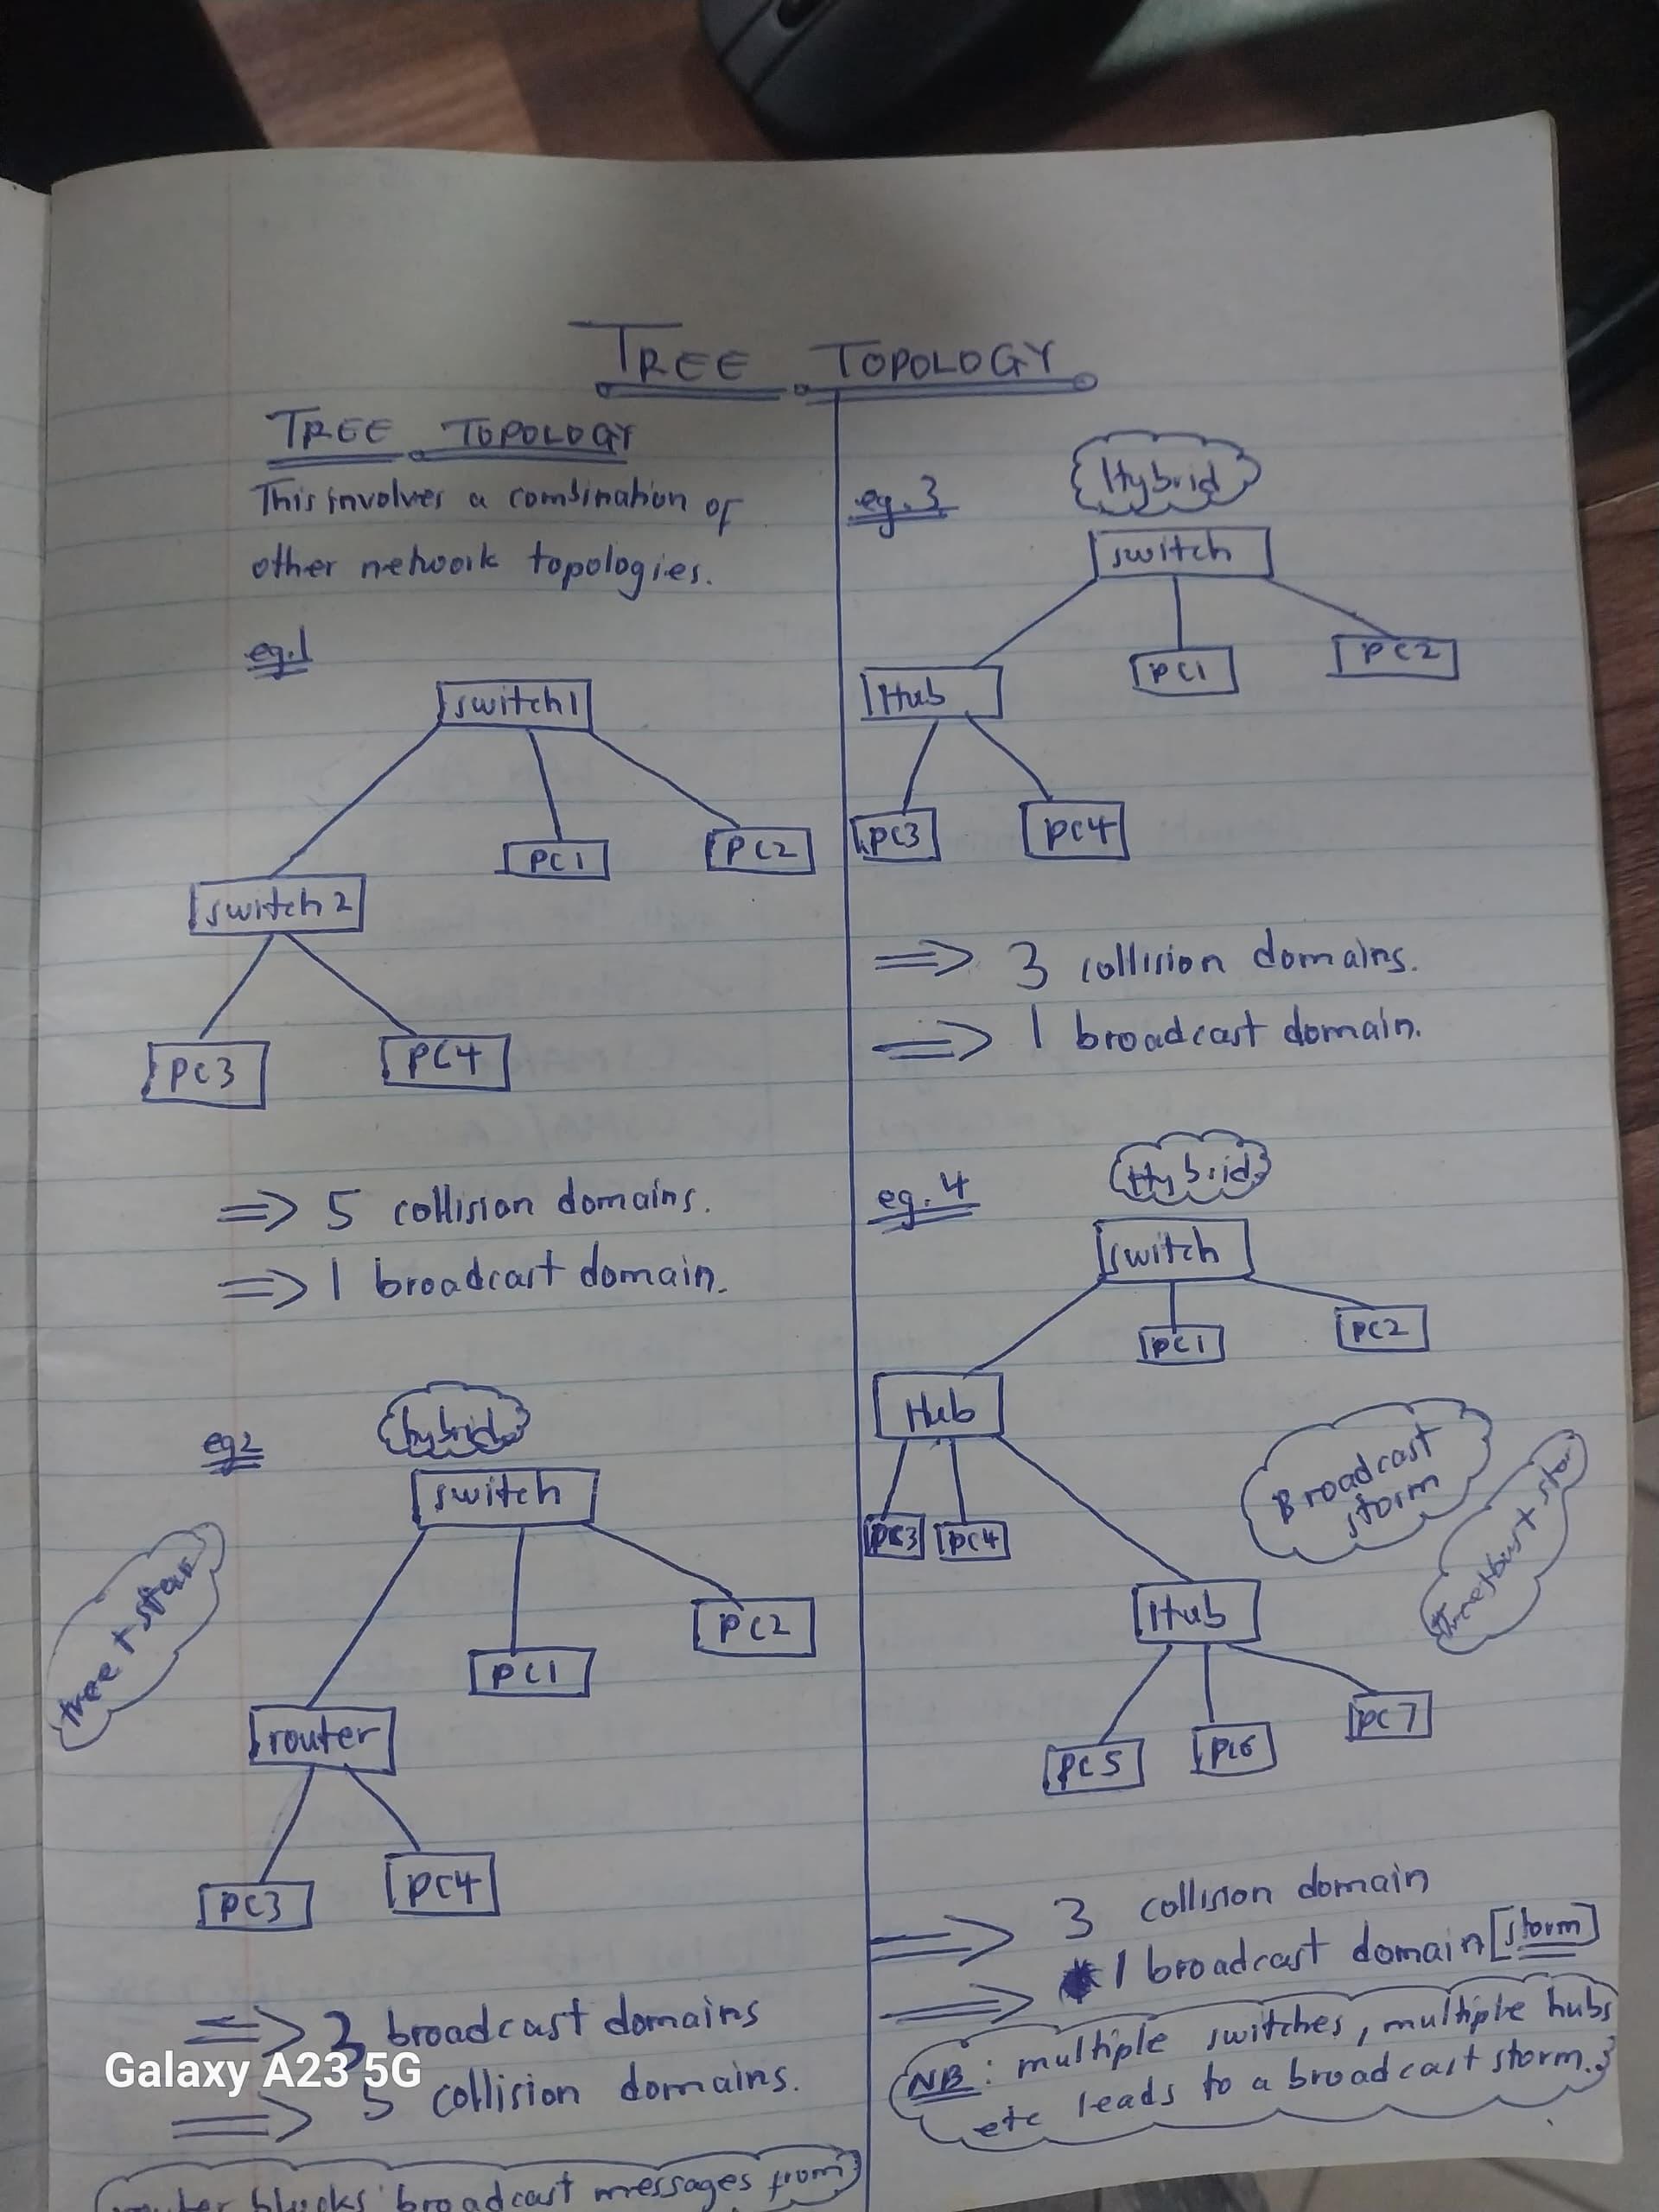 TREE TOPOLOGY
TREE TOPOLOGY
This involves a combination of
other network topologies.
eg.1
switch1
PC1
PC2
switch2
PC3
PC4
=> 5 collision domains.
=> 1 broadcast domain.
eg2
hybrid
switch
tree + star
PC2
PC1
router
PC3
PC4
=> 3 broadcast domains
=> 5 collision domains.
blocks broadcast messages from
eg.3
Hybrid
switch
Hub
PC1
PC2
PC3
PC4
=> 3 collision domains.
=> 1 broadcast domain.
eg.4
Hybrid
switch
PC1
PC2
Hub
Broadcast
storm
PC3
PC4
Hub
PC5
PC6
PC7
=> 3 collision domain
=> 1 broadcast domain [storm]
NB: multiple switches, multiple hubs
etc leads to a broadcast storm.
Galaxy A23 5G